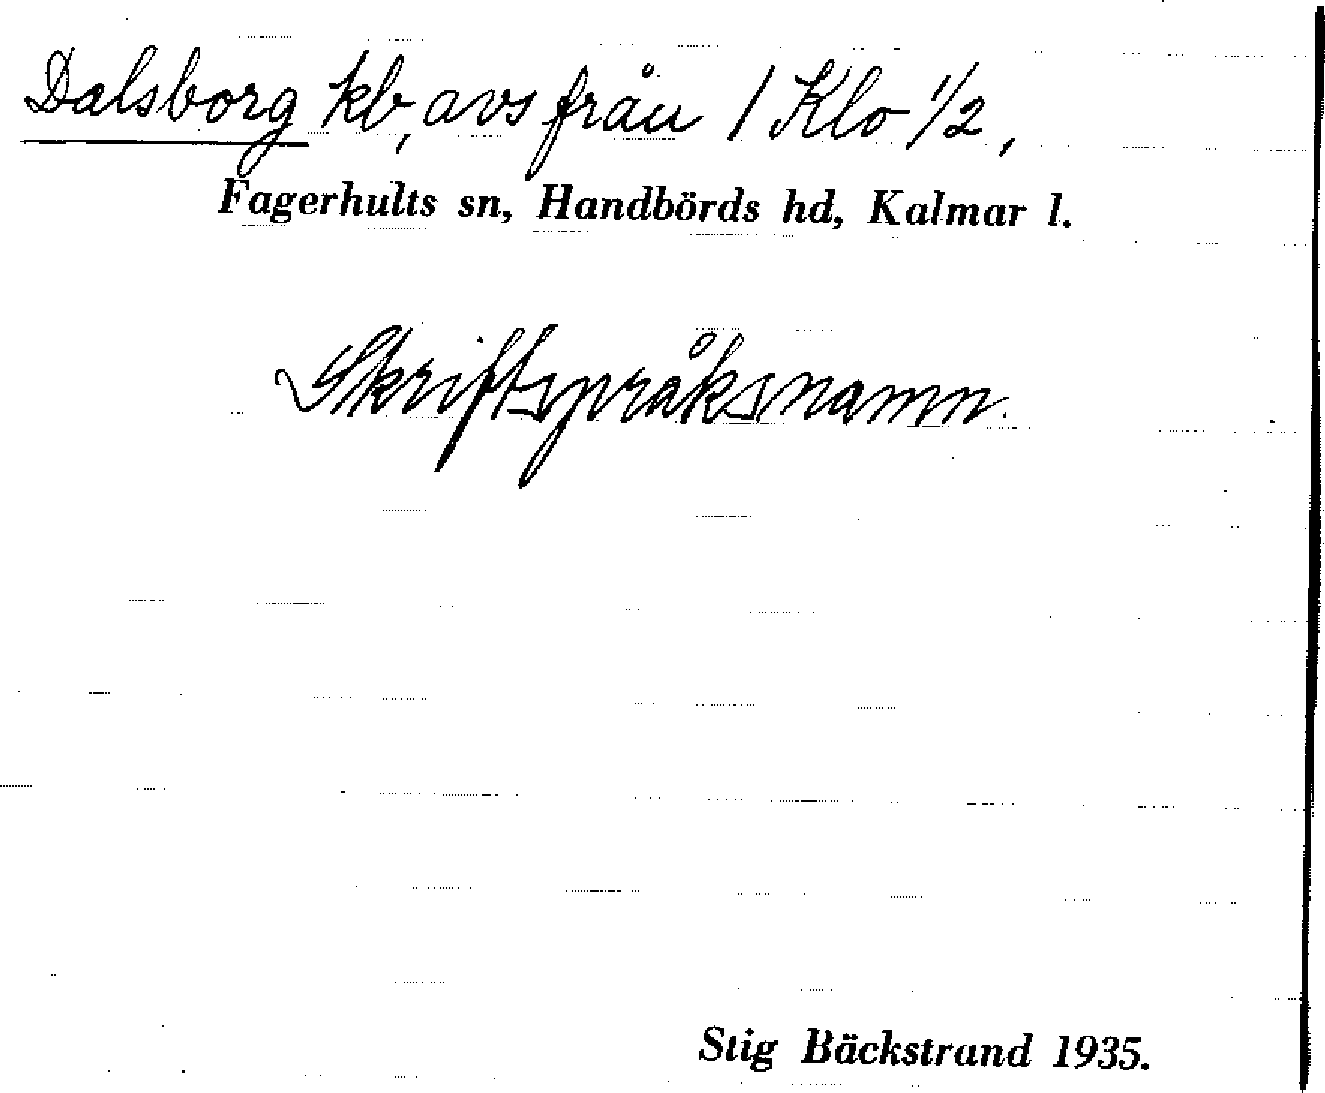 Dalsborg kb, avs från 1 Klo 1/2,
Fagerhults sn, Handbörds hd, Kalmar l.
Skriftspråksnamn.
Stig Bäckstrand 1935.